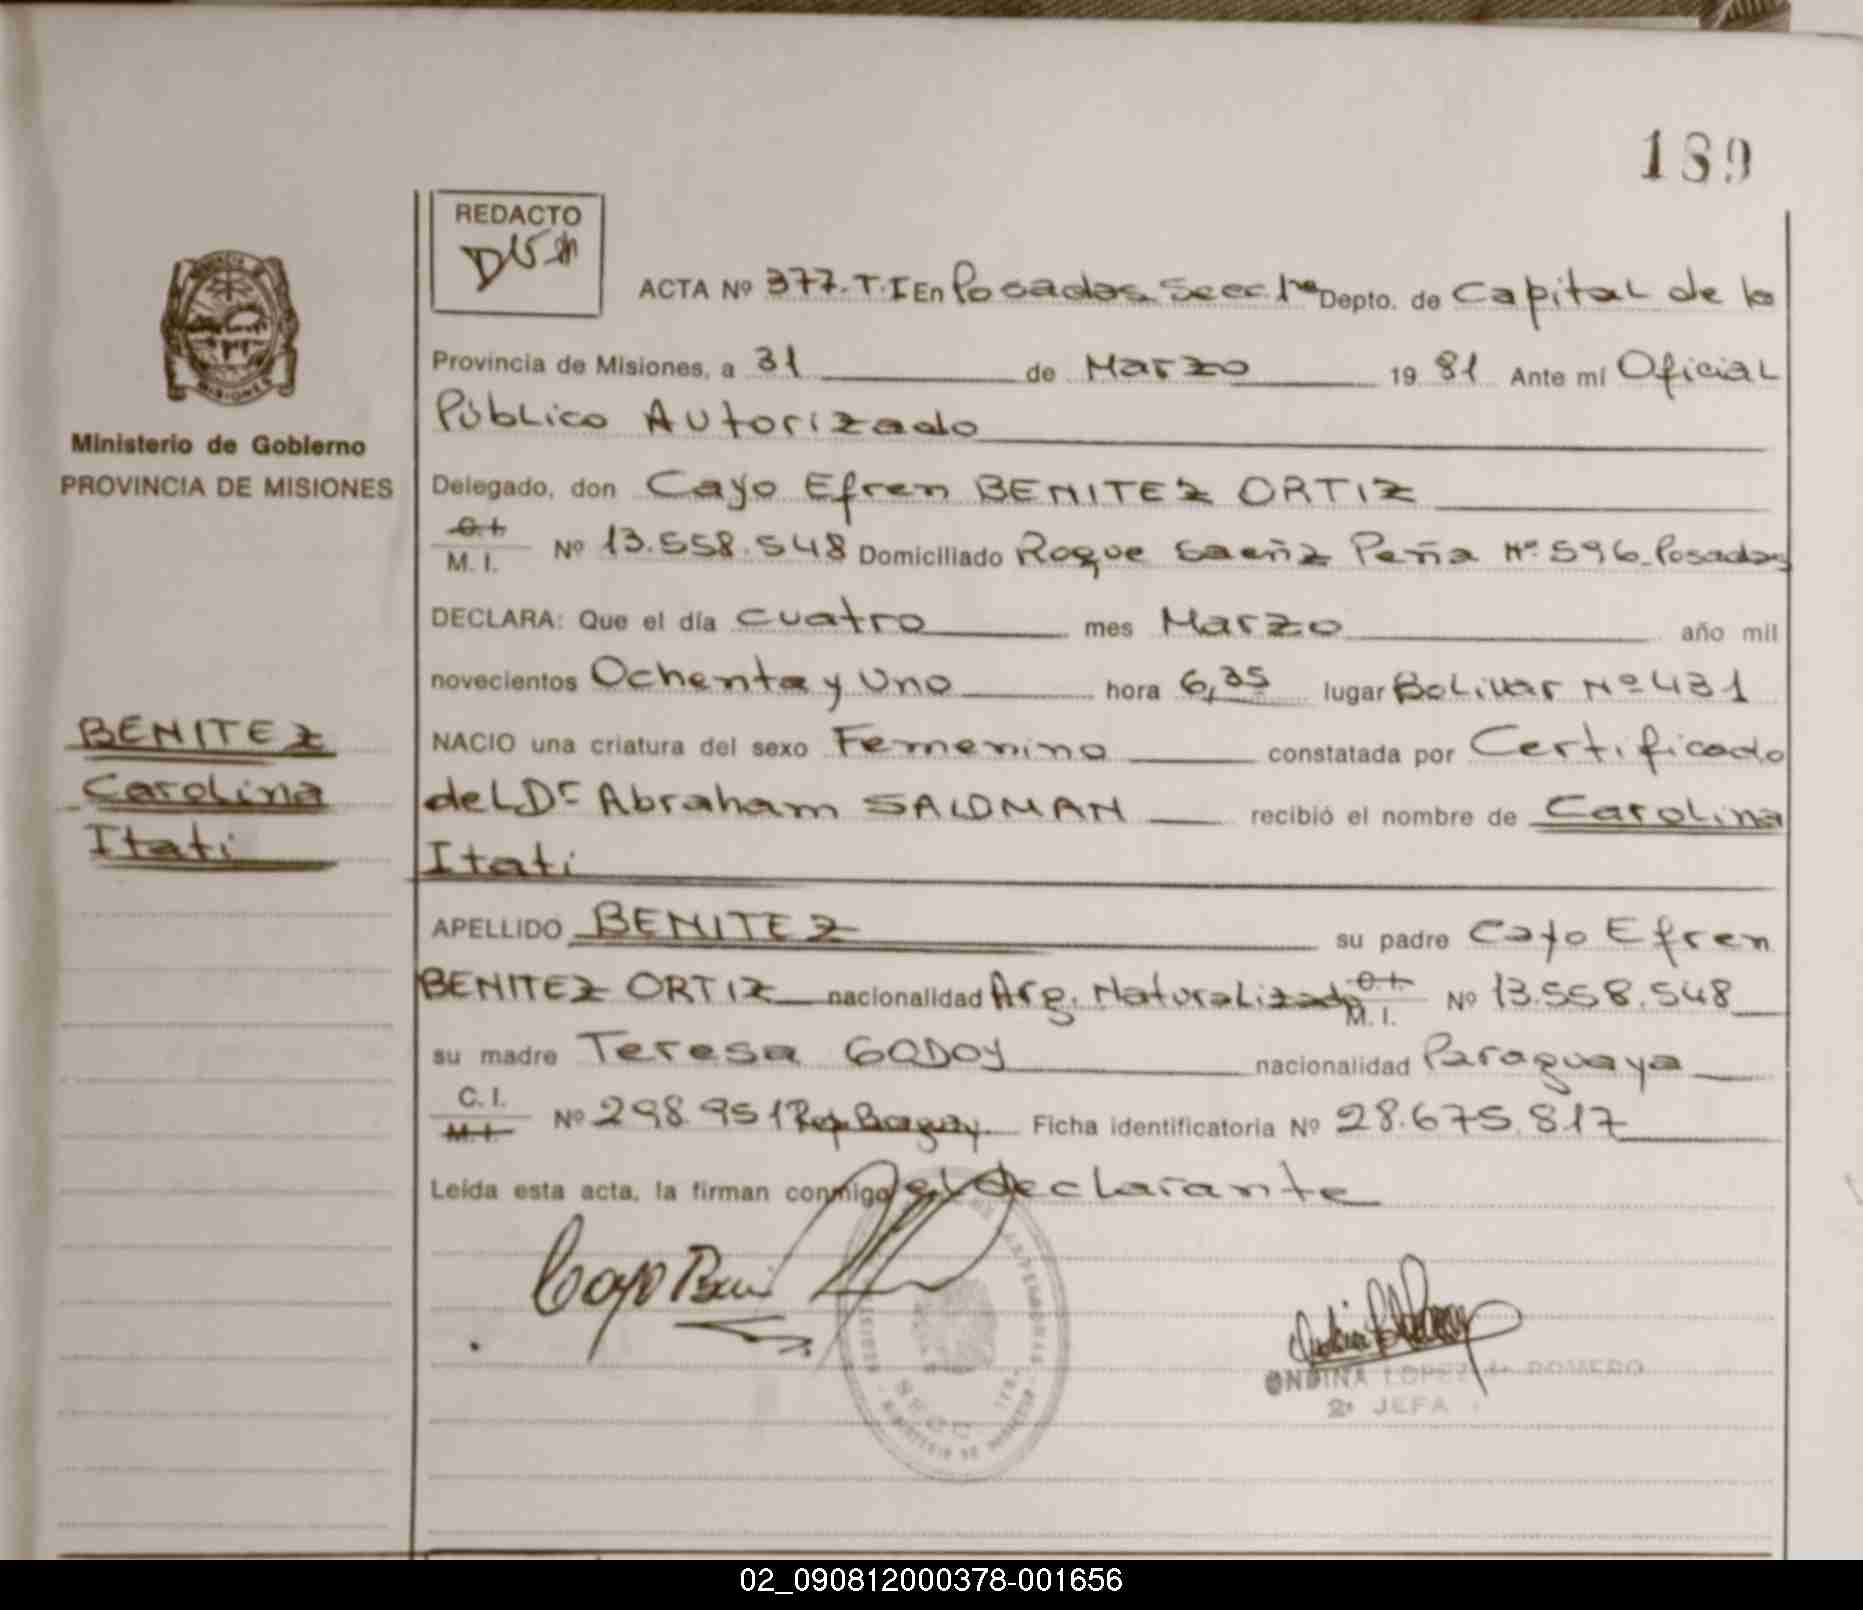 189
REDACTO
ACTA Nº 377. T. I En Posadas Secc. 1ra Depto. de Capital de la
Provincia de Misiones, a 31 de Marzo 19 81 Ante mí Oficial
Público Autorizado
Ministerio de Gobierno
PROVINCIA DE MISIONES
Delegado, don Cayo Efren BENITEZ ORTIZ
C.I. M. I. Nº 13.558.548 Domiciliado Roque Saeñz Peña Nº 596-Posadas
DECLARA: Que el día cuatro mes Marzo año mil
novecientos Ochenta y Uno hora 6,35 lugar Bolivar Nº 431
BENITEZ
Carolina
Itati
NACIO una criatura del sexo Femenino constatada por Certificado
del Dr Abraham SALOMAN recibió el nombre de Carolina
Itati
APELLIDO BENITEZ su padre Cayo Efren
BENITEZ ORTIZ nacionalidad Arg. Naturalizado C.I. M. I. Nº 13.558.548
su madre Teresa GODOY nacionalidad Paraguaya
C. I. M. I. Nº 298.951 Rep. Paraguay. Ficha identificatoria Nº 28.675.817
Leída esta acta, la firman conmigo el declarante
ONDINA LOPEZ de ROMERO
2º JEFA
02_090812000378-001656